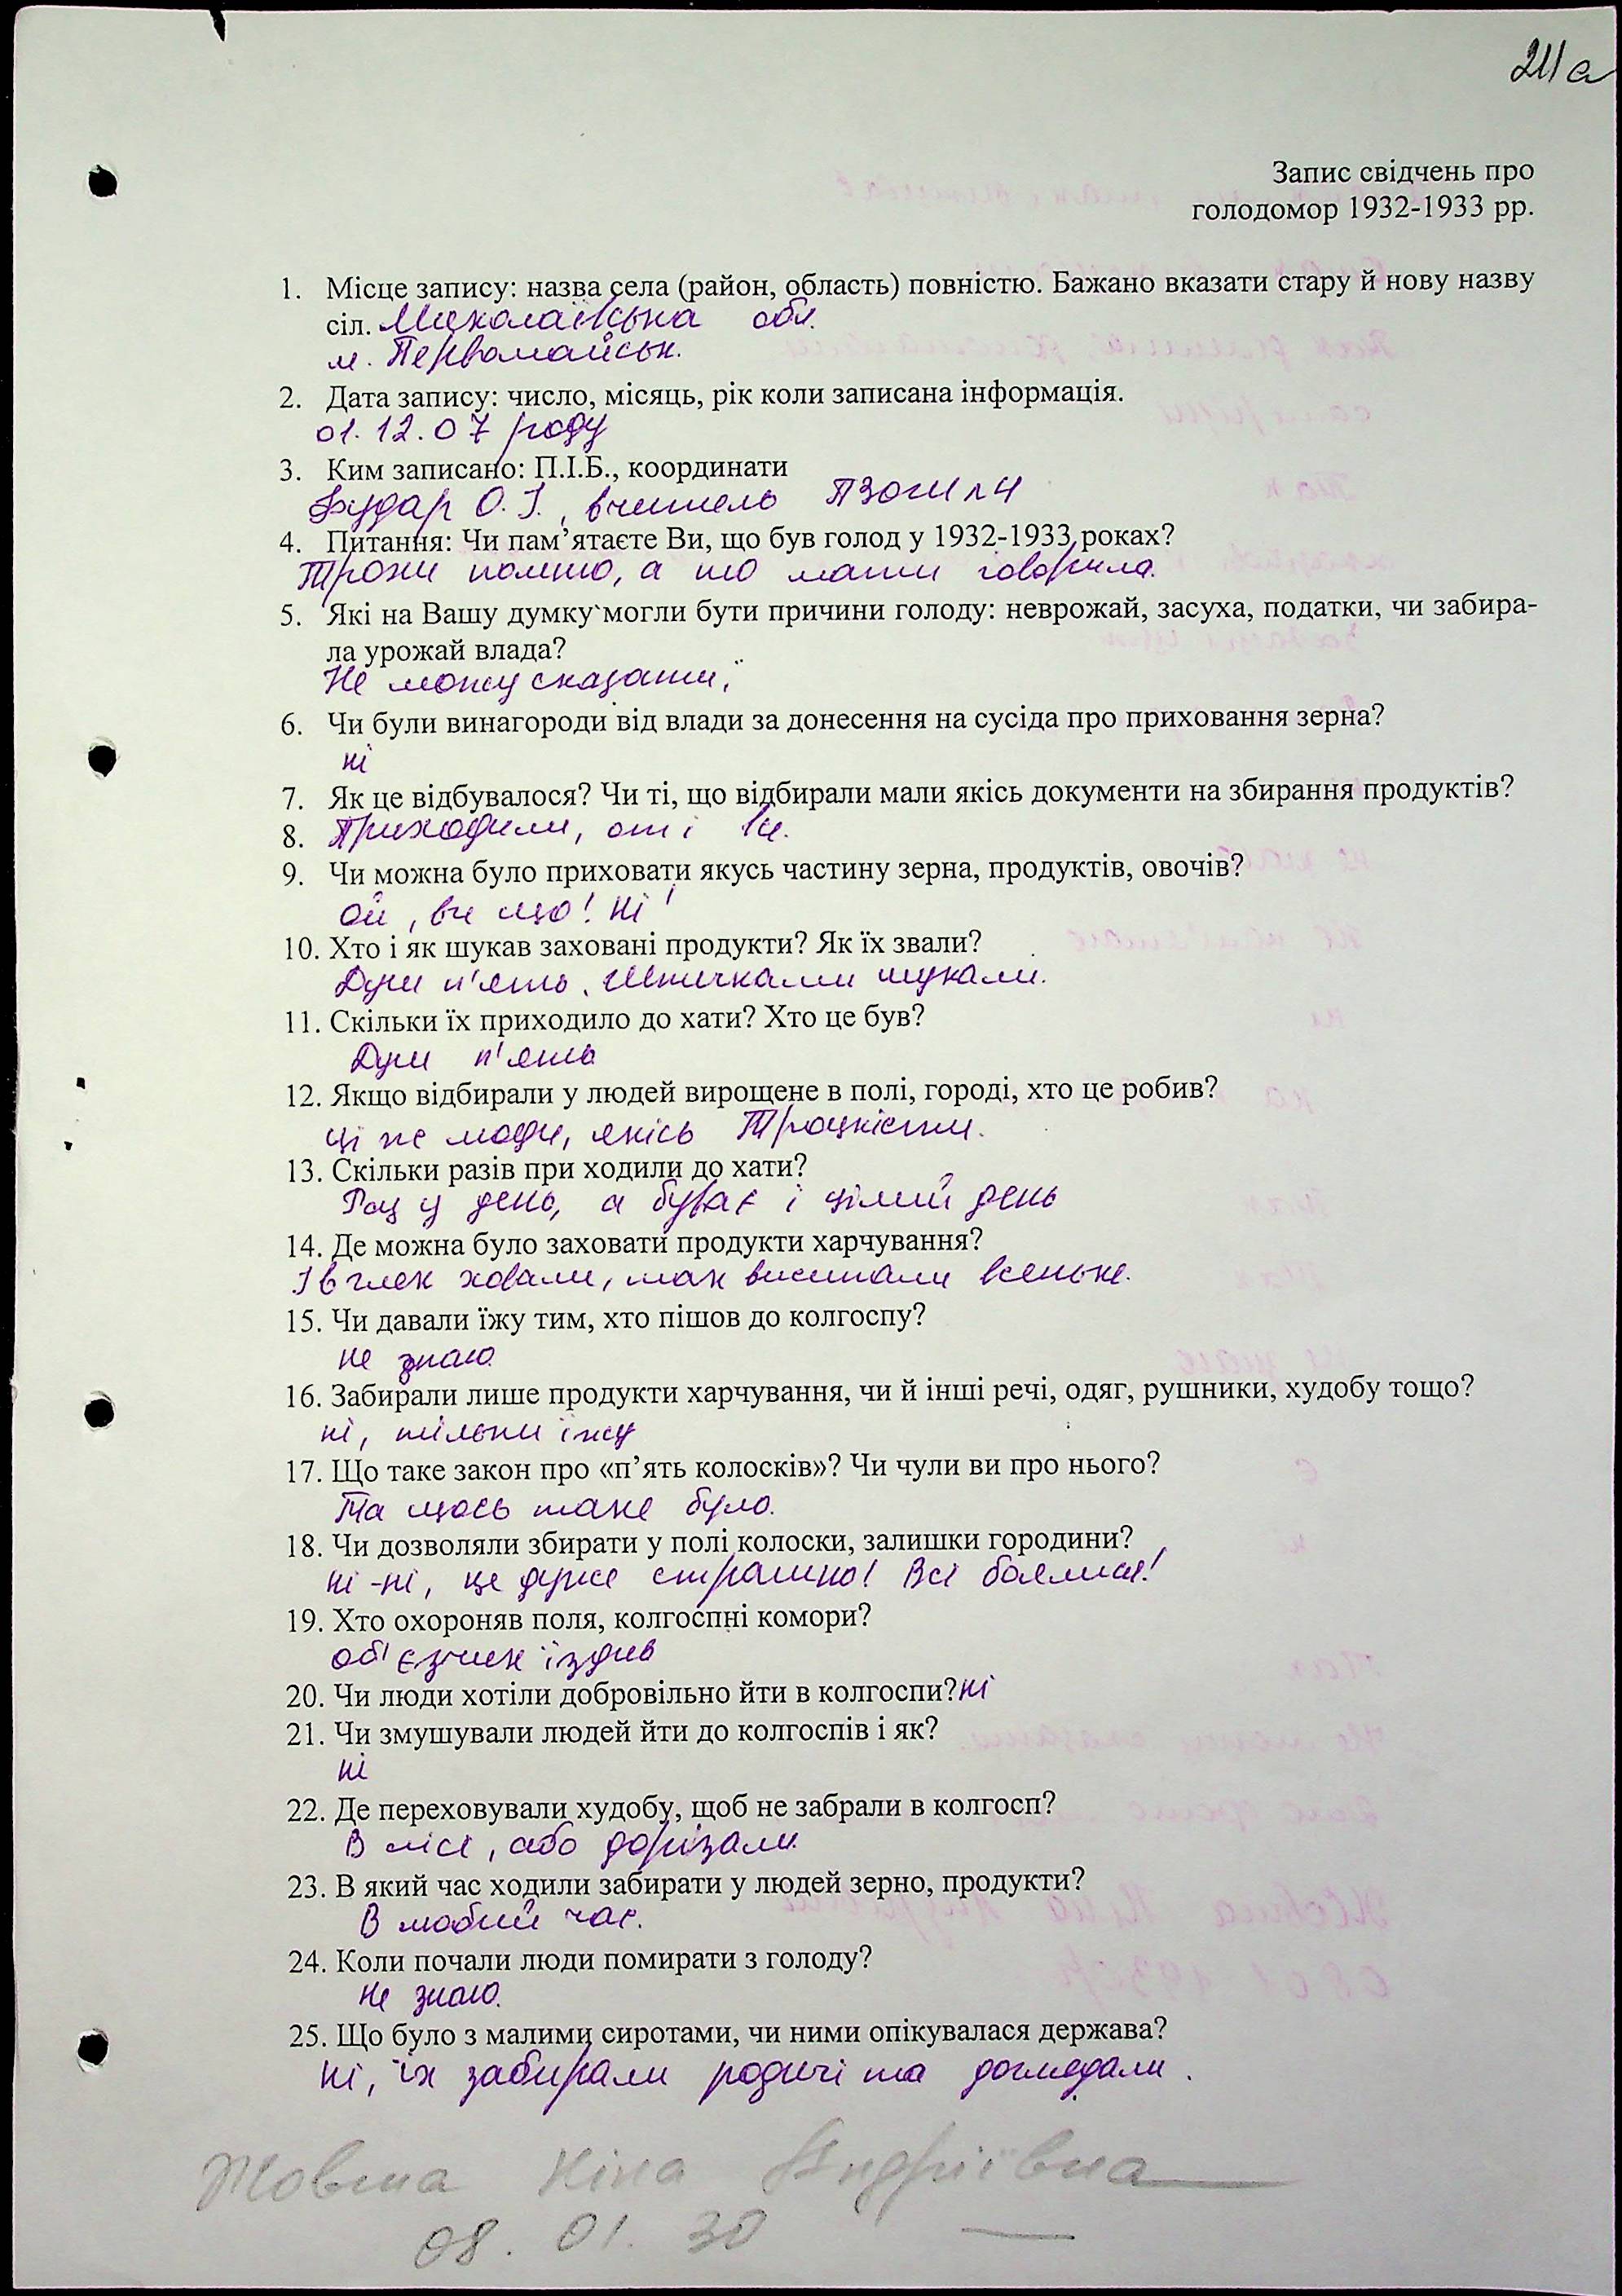 211а
Запис свідчень про
голодомор 1932-1933 рр.
1. Місце запису: назва села (район, область) повністю. Бажано вказати стару й нову назву
сіл. Миколаївська обл.
м. Первомайськ.
2. Дата запису: число, місяць, рік коли записана інформація.
01.12.07 року
3. Ким записано: П.І.Б., координати
О.І., вчитель ПЗОШ №4
4. Питання: Чи пам’ятаєте Ви, що був голод у 1932-1933 роках?
Трохи помню, а то мати говорила.
5. Які на Вашу думку могли бути причини голоду: неврожай, засуха, податки, чи забира-
ла урожай влада?
Не можу сказати,
6. Чи були винагороди від влади за донесення на сусіда про приховання зерна?
ні
7. Як це відбувалося? Чи ті, що відбирали мали якісь документи на збирання продуктів?
8. Приходили, от і
9. Чи можна було приховати якусь частину зерна, продуктів, овочів?
Ой, ви що! Ні!
10. Хто і як шукав заховані продукти? Як їх звали?
Душ п'ять. Штичками шукали.
11. Скільки їх приходило до хати? Хто це був?
Душ п'ять
12. Якщо відбирали у людей вирощене в полі, городі, хто це робив?
Ці же люди, якісь Троцкісти.
13. Скільки разів при ходили до хати?
Раз у день, а буває і цілий день
14. Де можна було заховати продукти харчування?
І в глек ховали, так висипали всеньке.
15. Чи давали їжу тим, хто пішов до колгоспу?
Не знаю.
16. Забирали лише продукти харчування, чи й інші речі, одяг, рушники, худобу тощо?
ні, тільки їжу
17. Що таке закон про «п’ять колосків»? Чи чули ви про нього?
Та щось таке було.
18. Чи дозволяли збирати у полі колоски, залишки городини?
Ні-ні, це дуже страшно! Всі боялися!
19. Хто охороняв поля, колгоспні комори?
об'єзчик їздив
20. Чи люди хотіли добровільно йти в колгоспи? Ні
21. Чи змушували людей йти до колгоспів і як?
Ні
22. Де переховували худобу, щоб не забрали в колгосп?
В лісі, або дорізали.
23. В який час ходили забирати у людей зерно, продукти?
В любий час.
24. Коли почали люди помирати з голоду?
Не знаю.
25. Що було з малими сиротами, чи ними опікувалася держава?
Ні, їх забирали родичі та доглядали.
Жовта Ніна Андріївна
08.01.30